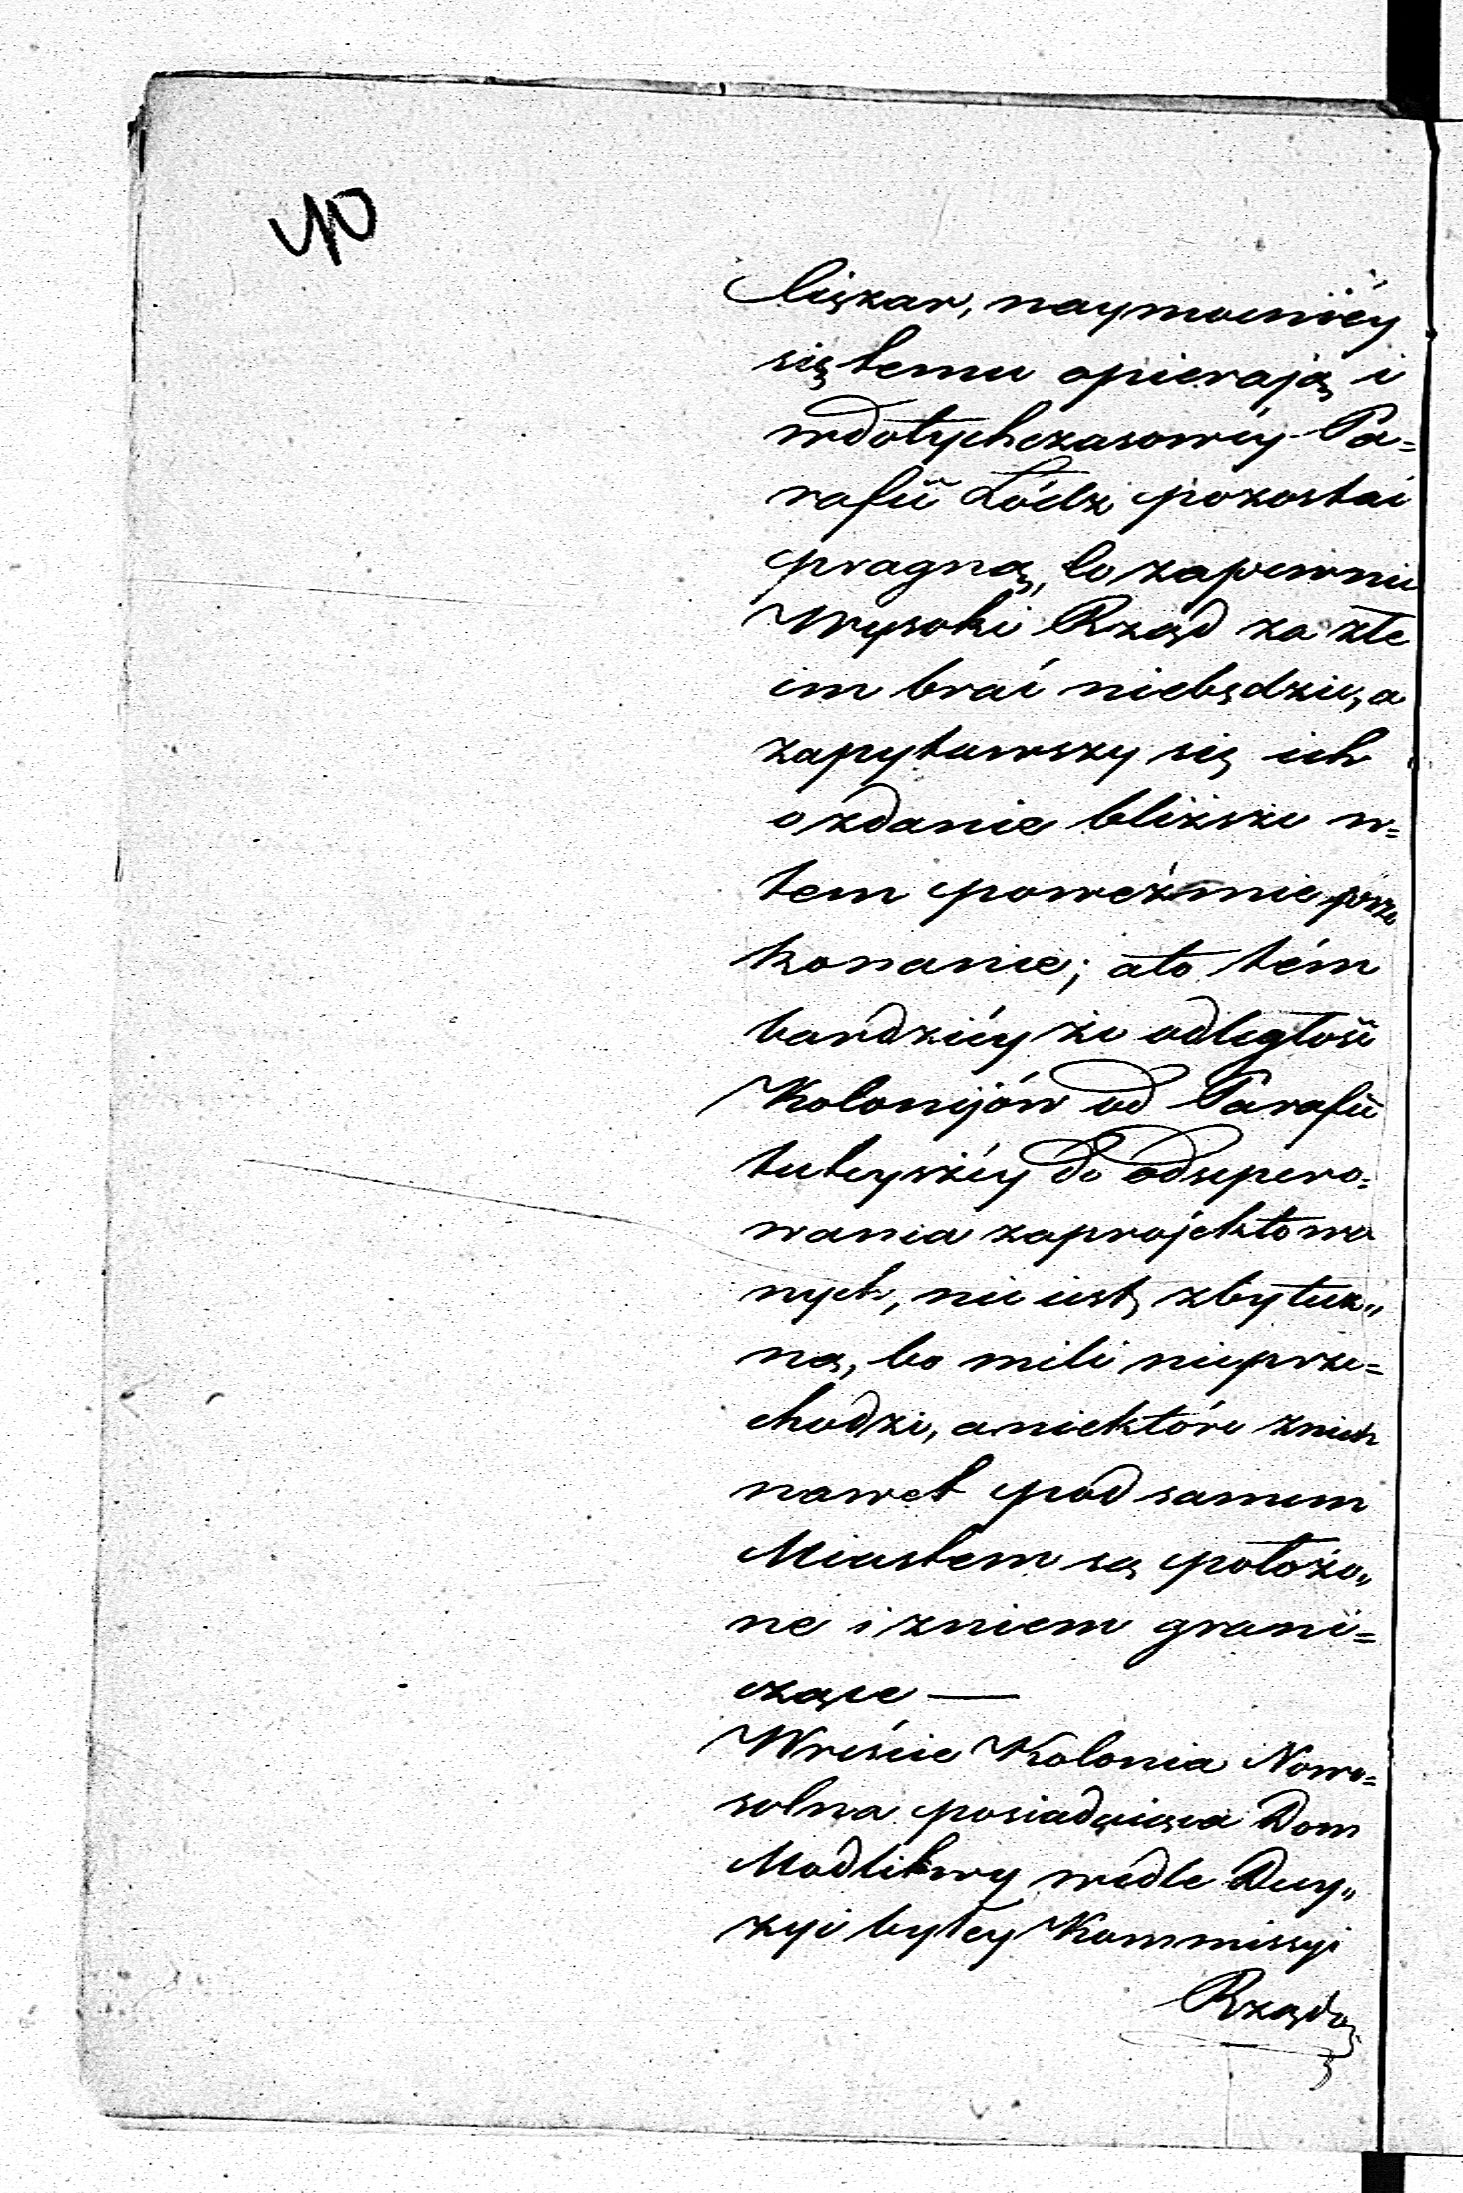 40
Ciężar, naymocniéy
się temu opierają i
wdotychczasowéy Pa=
rafii Łódź pozostać
pragną, to zapewnie
Wysoki Rząd za złe
im brać niebędzie, a
zapytawszy się ich
o zdanie bliższe w=
tem poweźmie prze
konanie; ato tém
bardziéy że odległość
Kolonijów od Parafii
tuteyszéy do odsepero=
wania zaprojektowa
nych, nie iest zbytecz„
na, bo mili nieprze=
chodzi, a niektóre znich
nawet pod samem
Miastem są położo„
ne i zniem grani=
czące —
Wreście Kolonia Nowo=
solna posiadaiąca Dom
Modlitwy wedle Decy„
zyi byłey Kommissyi
Rządo=